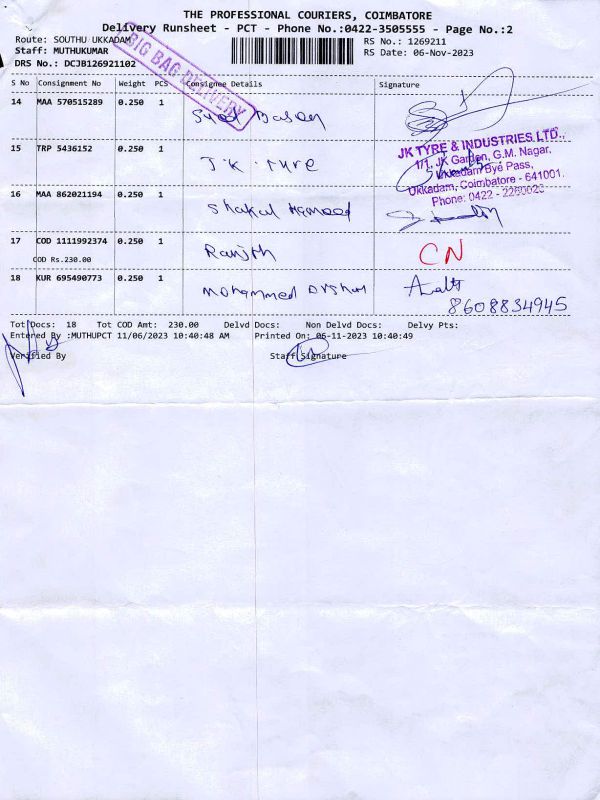 THE PROFESSIONAL COURIERS, COIMBATORE
Delivery Runsheet - PCT - Phone No.:0422-3505555 - Page No.:2
Route: SOUTHU UKKADAM
RS No.: 1269211
Staff: MUTHUKUMAR
RS Date: 06-Nov-2023
DRS No.: DCJB126921102
BIG BAG DELIVERY
S No Consignment No Weight PCS Consignee Details Signature
14 MAA 570515289 0.250 1
Syed
15 TRP 5436152 0.250 1
J.K. Tyre
JK TYRE & INDUSTRIES LTD.,
1/1, JK Garden, G.M. Nagar,
Ukkadam Bye Pass,
Ukkadam, Coimbatore - 641001.
Phone: 0422 -
16 MAA 862021194 0.250 1
Shakul Hameed
17 COD 1111992374 0.250 1 Ranjth CN
COD Rs.230.00
18 KUR 695490773 0.250 1
Mohammed
8608834945
Tot Docs: 18 Tot COD Amt: 230.00 Delvd Docs: Non Delvd Docs: Delvy Pts:
Entered By :MUTHUPCT 11/06/2023 10:40:48 AM Printed On: 06-11-2023 10:40:49
Verified By Staff Signature